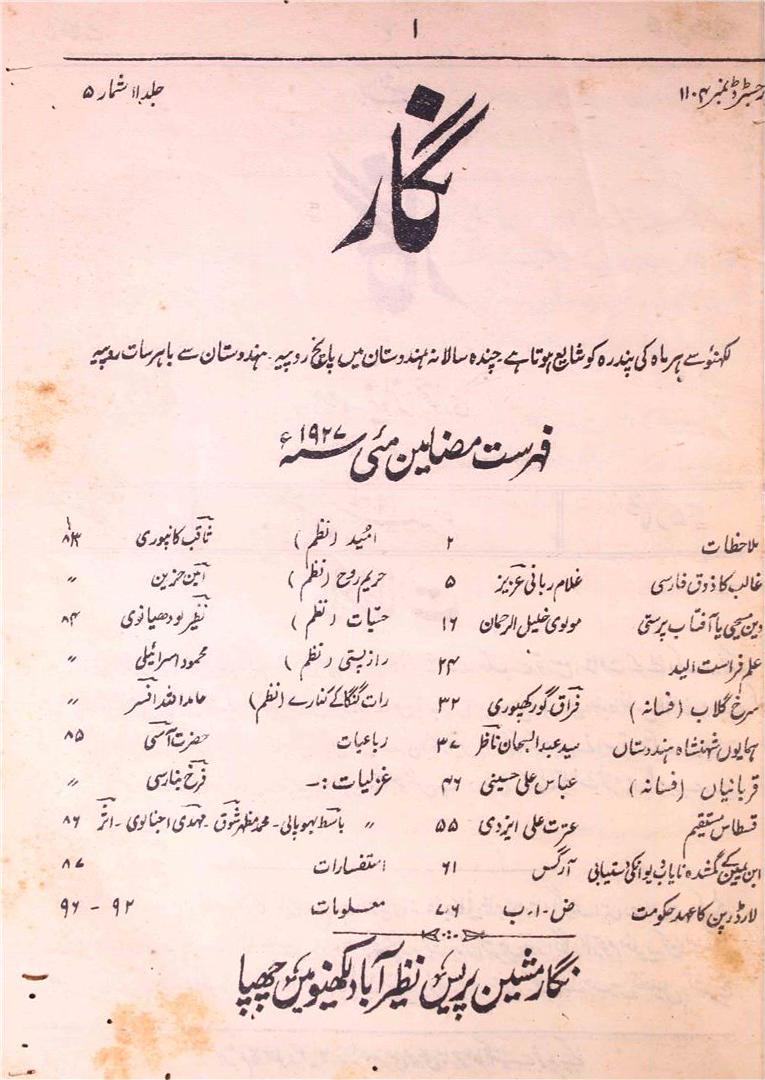 ۱
رجسٹرڈ نمبر ۱۱۰۴ جلد ۱۱ شمار ۵
نگار
لکھنؤ سے ہر ماہ کی پندرہ کو شایع ہوتا ہے۔ چندہ سالانہ ہندوستان میں پانچ روپیہ۔ ہندوستان سے باہر سات روپیہ
فہرست مضامین مئی سنہ ۱۹۲۷ء
ملاحظات ۲ امید (نظم) ثاقب کانپوری ۸۳
غالب کا ذوق فارسی غلام ربانی عزیز ۵ حریم روح (نظم) امین حزین 〃
دین مسیحی یا آفتاب پرستی مولوی خلیل الرحمان ۱۶ حسیّات (نظم) نظیر لودھیانوی ۸۴
علم فراست الید ۲۴ راز پستی (نظم) محمود اسرائیلی 〃
سرخ گلاب (فسانہ) فراق گورکھپوری ۳۲ رات گنگا کے کنارے (نظم) حامد اللہ افسر 〃
ہمایوں شہنشاہ ہندوستاں سید عبد السبحان ناظر ۳۷ رباعیات حضرت آسی ۸۵
قربانیاں (فسانہ) عباس علی حسینی ۴۶ غزلیات :- فرخ بنارسی 〃
قسطاس مستقیم عزت علی ایزدی ۵۵ 〃 باسط بھوپالی۔ محمد مظہر شوق۔ مہدی اجنالوی۔ اثر ۸۶
ابن یمین کے گمشدہ نایاب دیوان کی دستیابی آرگس ۶۱ استفسارات ۸۷
لارڈ رپن کا عہد حکومت ض۔ ا۔ ب ۷۶ معلومات ۹۲ - ۹۶
نگار مشین پریس نظیر آباد لکھنؤ میں چھپا